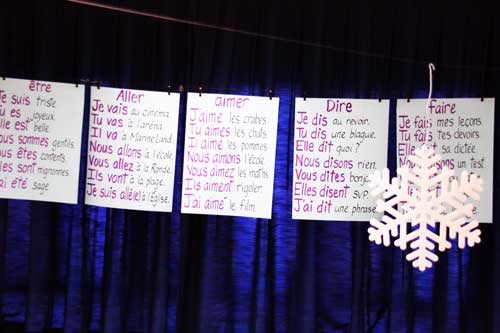 être
Je suis triste
Tu es joyeux.
Elle est belle.
Nous sommes gentils.
Vous êtes contents.
Ils sont mignonnes.
J'ai été sage.
Aller
Je vais au cinéma.
Tu vas à l'aréna.
Il va à MarineLand.
Nous allons à l'école.
Vous allez à la Ronde.
Ils vont à la plage.
Je suis allé(e) à l'Église.
aimer
J'aime les crabes.
Tu aimes les chats.
Il aime les pommes.
Nous aimons l'école.
Vous aimez les maths.
Ils aiment rigoler.
J'ai aimé le film.
Dire
Je dis au revoir.
Tu dis une blague.
Elle dit quoi?
Nous disons rien.
Vous dites
Elles disent
J'ai dit une phrase.
faire
Je fais mes leçons.
Tu fais tes devoirs.
sa dictée.
un test